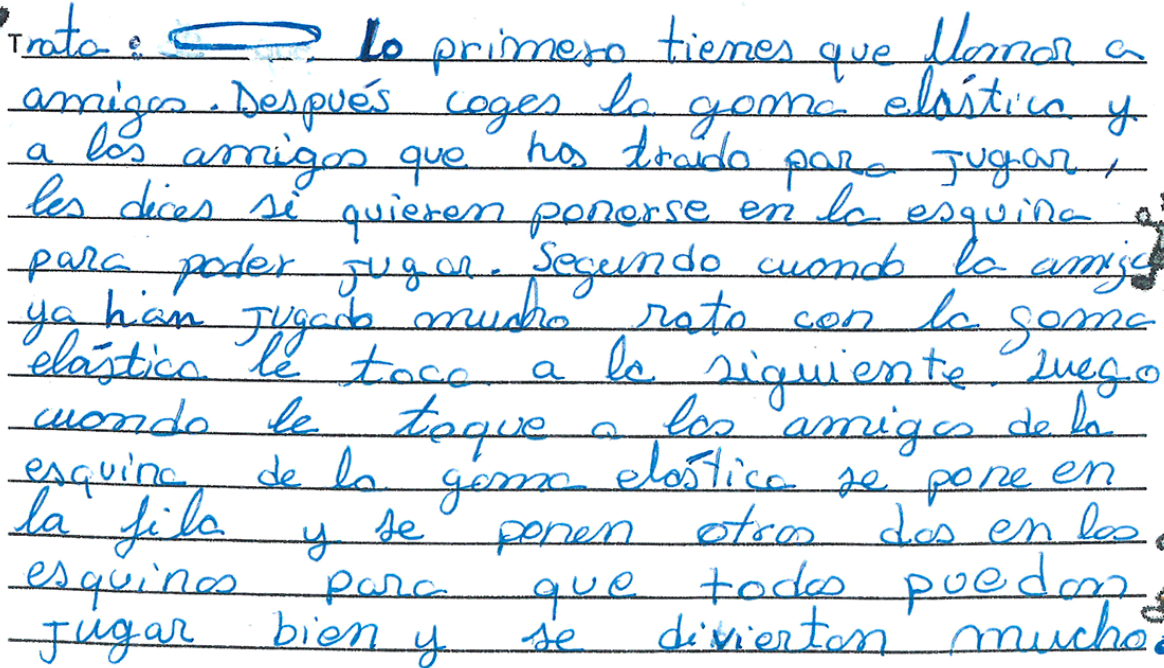 Trata: Lo primero tienes que llamar a
amigas. Después coges la goma elástica y
a las amigas que has traido para jugar,
les dices si quieren ponerse en la esquina
para poder jugar. Segundo cuando la amiga
ya han jugado mucho rato con la goma
elástica le toca a la siguiente. Luego
cuando le toque a las amigas de la
esquina de la goma elástica se pone en
la fila y se ponen otras dos en las
esquinas para que todas puedan
jugar bien y se diviertan mucho.